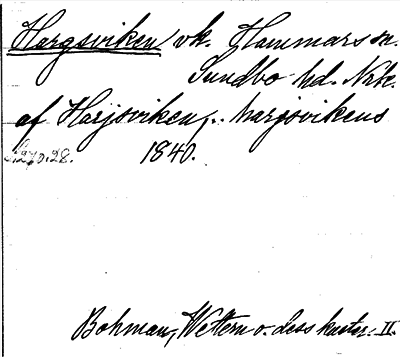 Hargsviken vk. Hammars sn.
Sundbo hd. Nrke.
af Harjsviken, .. hargsvikens
1840.
Bohman, Wettern o. dess kuster. II.